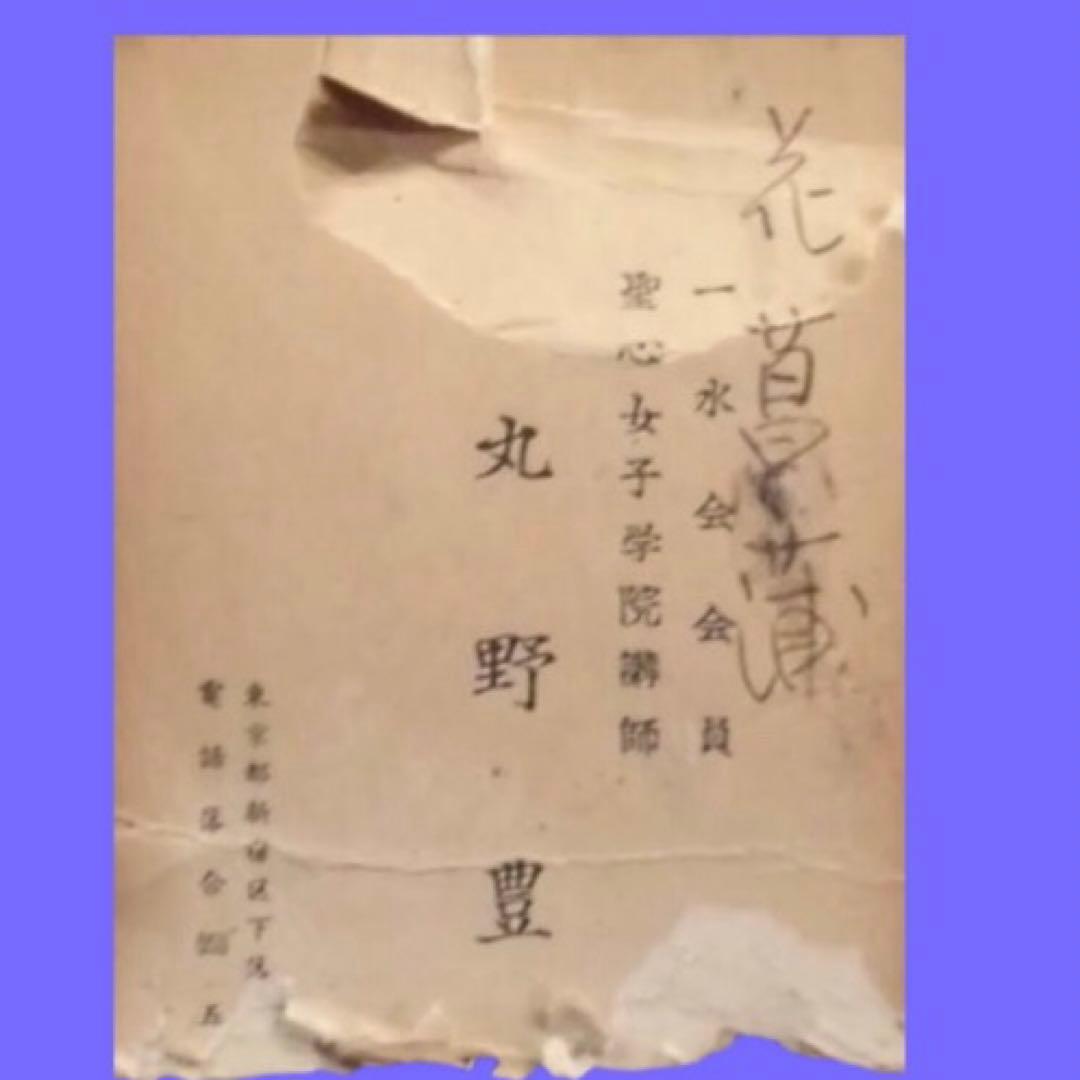 花菖蒲
一水会会員
聖心女子学院講師
丸野豊
東京都新宿区下落
電話落合